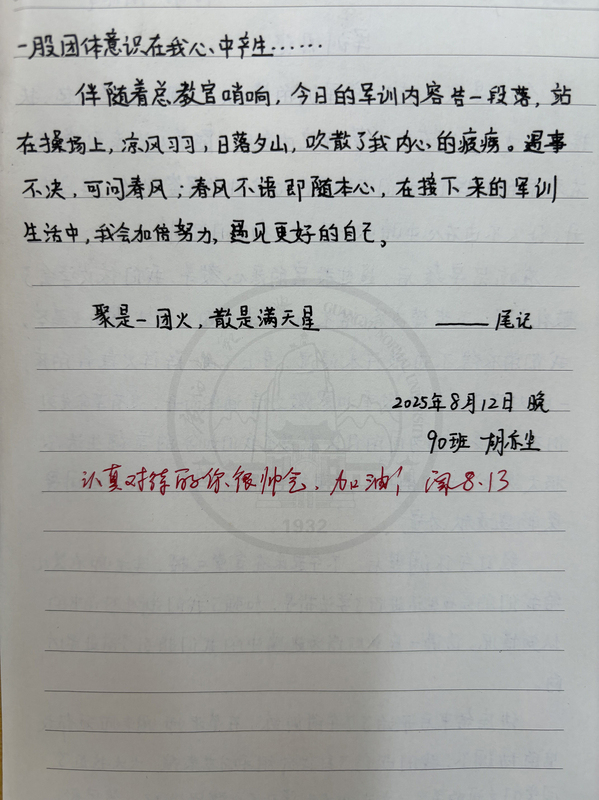 一股团体意识在我心中产生……
伴随着总教官哨响,今日的军训内容告一段落,站
在操场上,凉风习习,日落夕山,吹散了我内心的疲惫。遇事
不决,可问春风;春风不语即随本心,在接下来的军训
生活中,我会加倍努力,遇见更好的自己。
聚是一团火,散是满天星 ——尾记
2025年8月12日 晚
90班 胡
认真对待的你、很帅气、加油! 阅8.13
1932